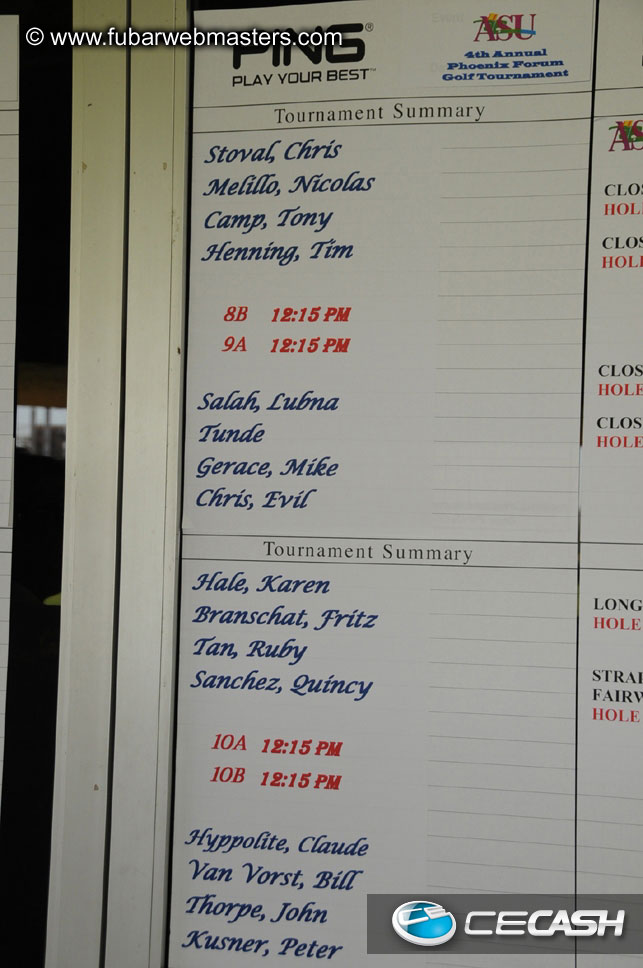 © www.fubarwebmasters.com
PING®
PLAY YOUR BEST™
ASU
4th Annual
Phoenix Forum
Golf Tournament
Tournament Summary
Stoval, Chris
Melillo, Nicolas
Camp, Tony
Henning, Tim
8B 12:15 PM
9A 12:15 PM
Salah, Lubna
Tunde
Gerace, Mike
Chris, Evil
Tournament Summary
Hale, Karen
Branschat, Fritz
Tan, Ruby
Sanchez, Quincy
10A 12:15 PM
10B 12:15 PM
Hyppolite, Claude
Van Vorst, Bill
Thorpe, John
Kusner, Peter
AS
CLOS
HOL
CLOS
HOLI
CLOS
HOLE
CLOS
HOLE
LONG
HOLE
STRAI
FAIRW
HOLE
CECASH